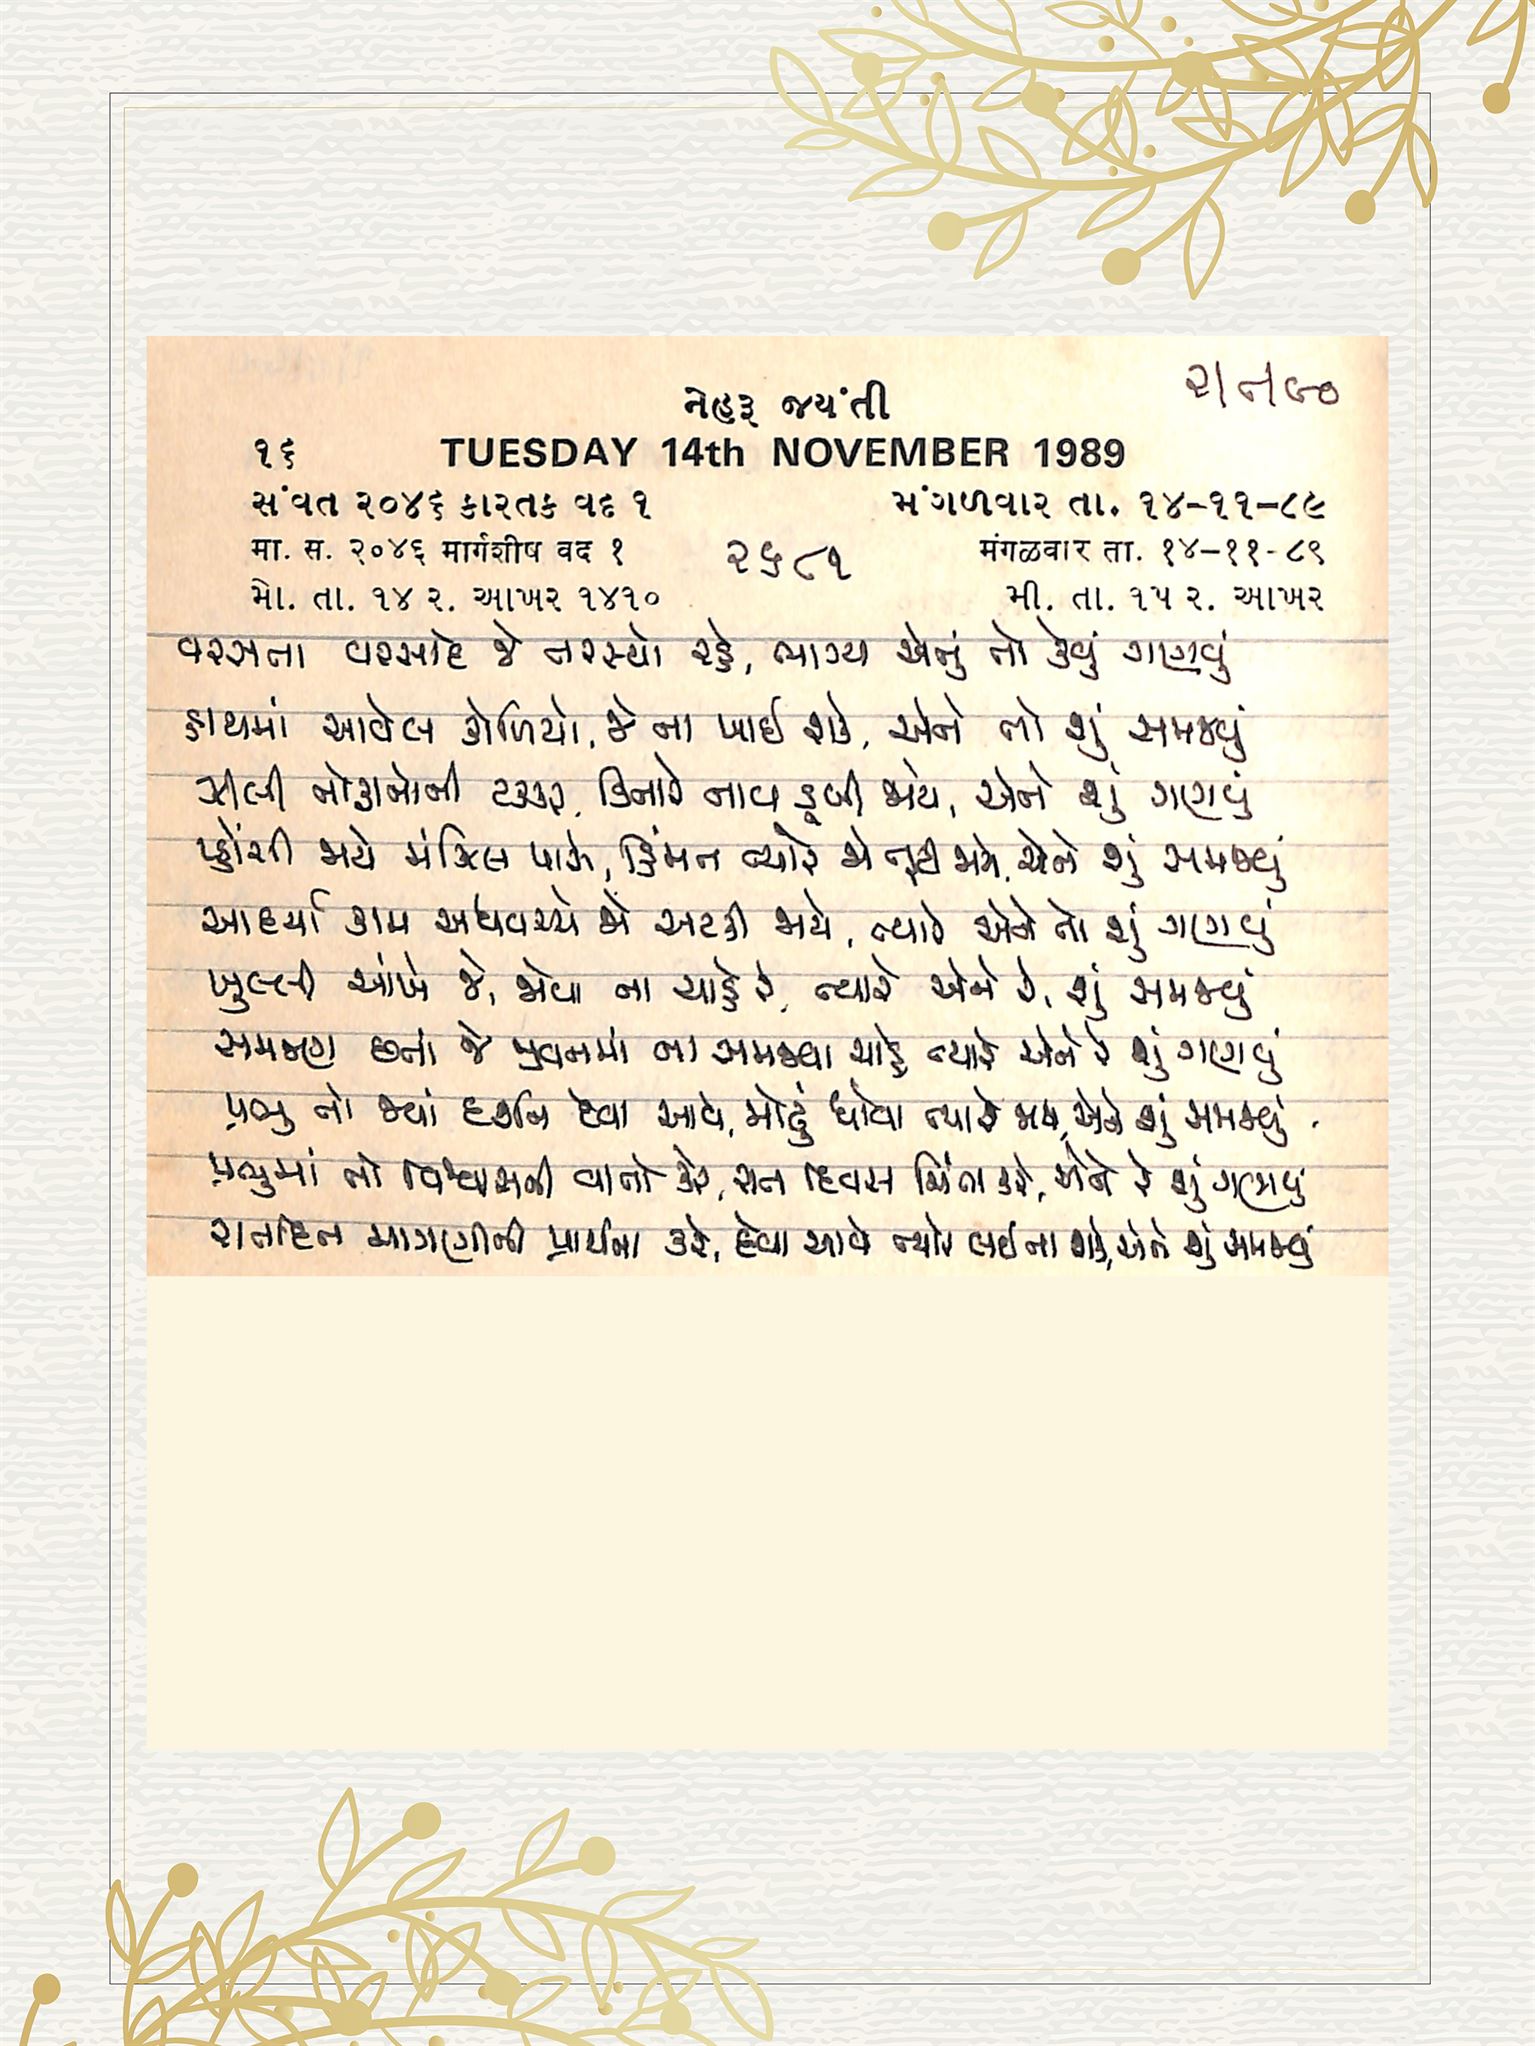 નેહરૂ જયંતી
૧૬ TUESDAY 14th NOVEMBER 1989
સંવત ૨૦૪૬ કારતક વદ ૧ મંગળવાર તા. ૧૪-૧૧-૮૯
મા. સ. ૨૦૪૬ मार्गशीष वद १ ૨૬૮૧ मंगळवार ता. १४-११-८९
મો. તા. ૧૪ ર. આખર ૧૪૧૦ મી. તા. ૧૫ ર. આખર
વરસતા વરસાદે જે તરસ્યો રહે, ભાગ્ય એનું તો કેવું ગણવું
હાથમાં આવેલ કોળિયો, જે ના ખાઈ શકે, એને તો શું સમજવું
ઝીલી તોફાનોની ટક્કર, કિનારે નાવ ડૂબી જાયે, એને શું ગણવું
પ્હોંચી જાયે મંઝિલ પાસે, હિંમત ત્યારે જો તૂટી જાયે, એને શું સમજવું
આદર્યા કામ અધવચ્ચે જો અટકી જાયે, ત્યારે એને તો શું ગણવું
ખુલ્લી આંખે જે, જોવા ના ચાહે રે, ત્યારે એને રે, શું સમજવું
સમજણ છતાં જે જીવનમાં ના સમજવા ચાહે ત્યારે એને રે શું ગણવું
પ્રભુ તો જ્યાં દર્શન દેવા આવે, મોઢું ધોવા ત્યારે જાય, એને શું સમજવું
પ્રભુમાં તો વિશ્વાસની વાતો કરે, રાત દિવસ ચિંતા કરે, એને રે શું ગણવું
રાતદિન માગણીની પ્રાર્થના કરે, દેવા આવે ત્યારે લઈ ના શકે, એને શું સમજવું